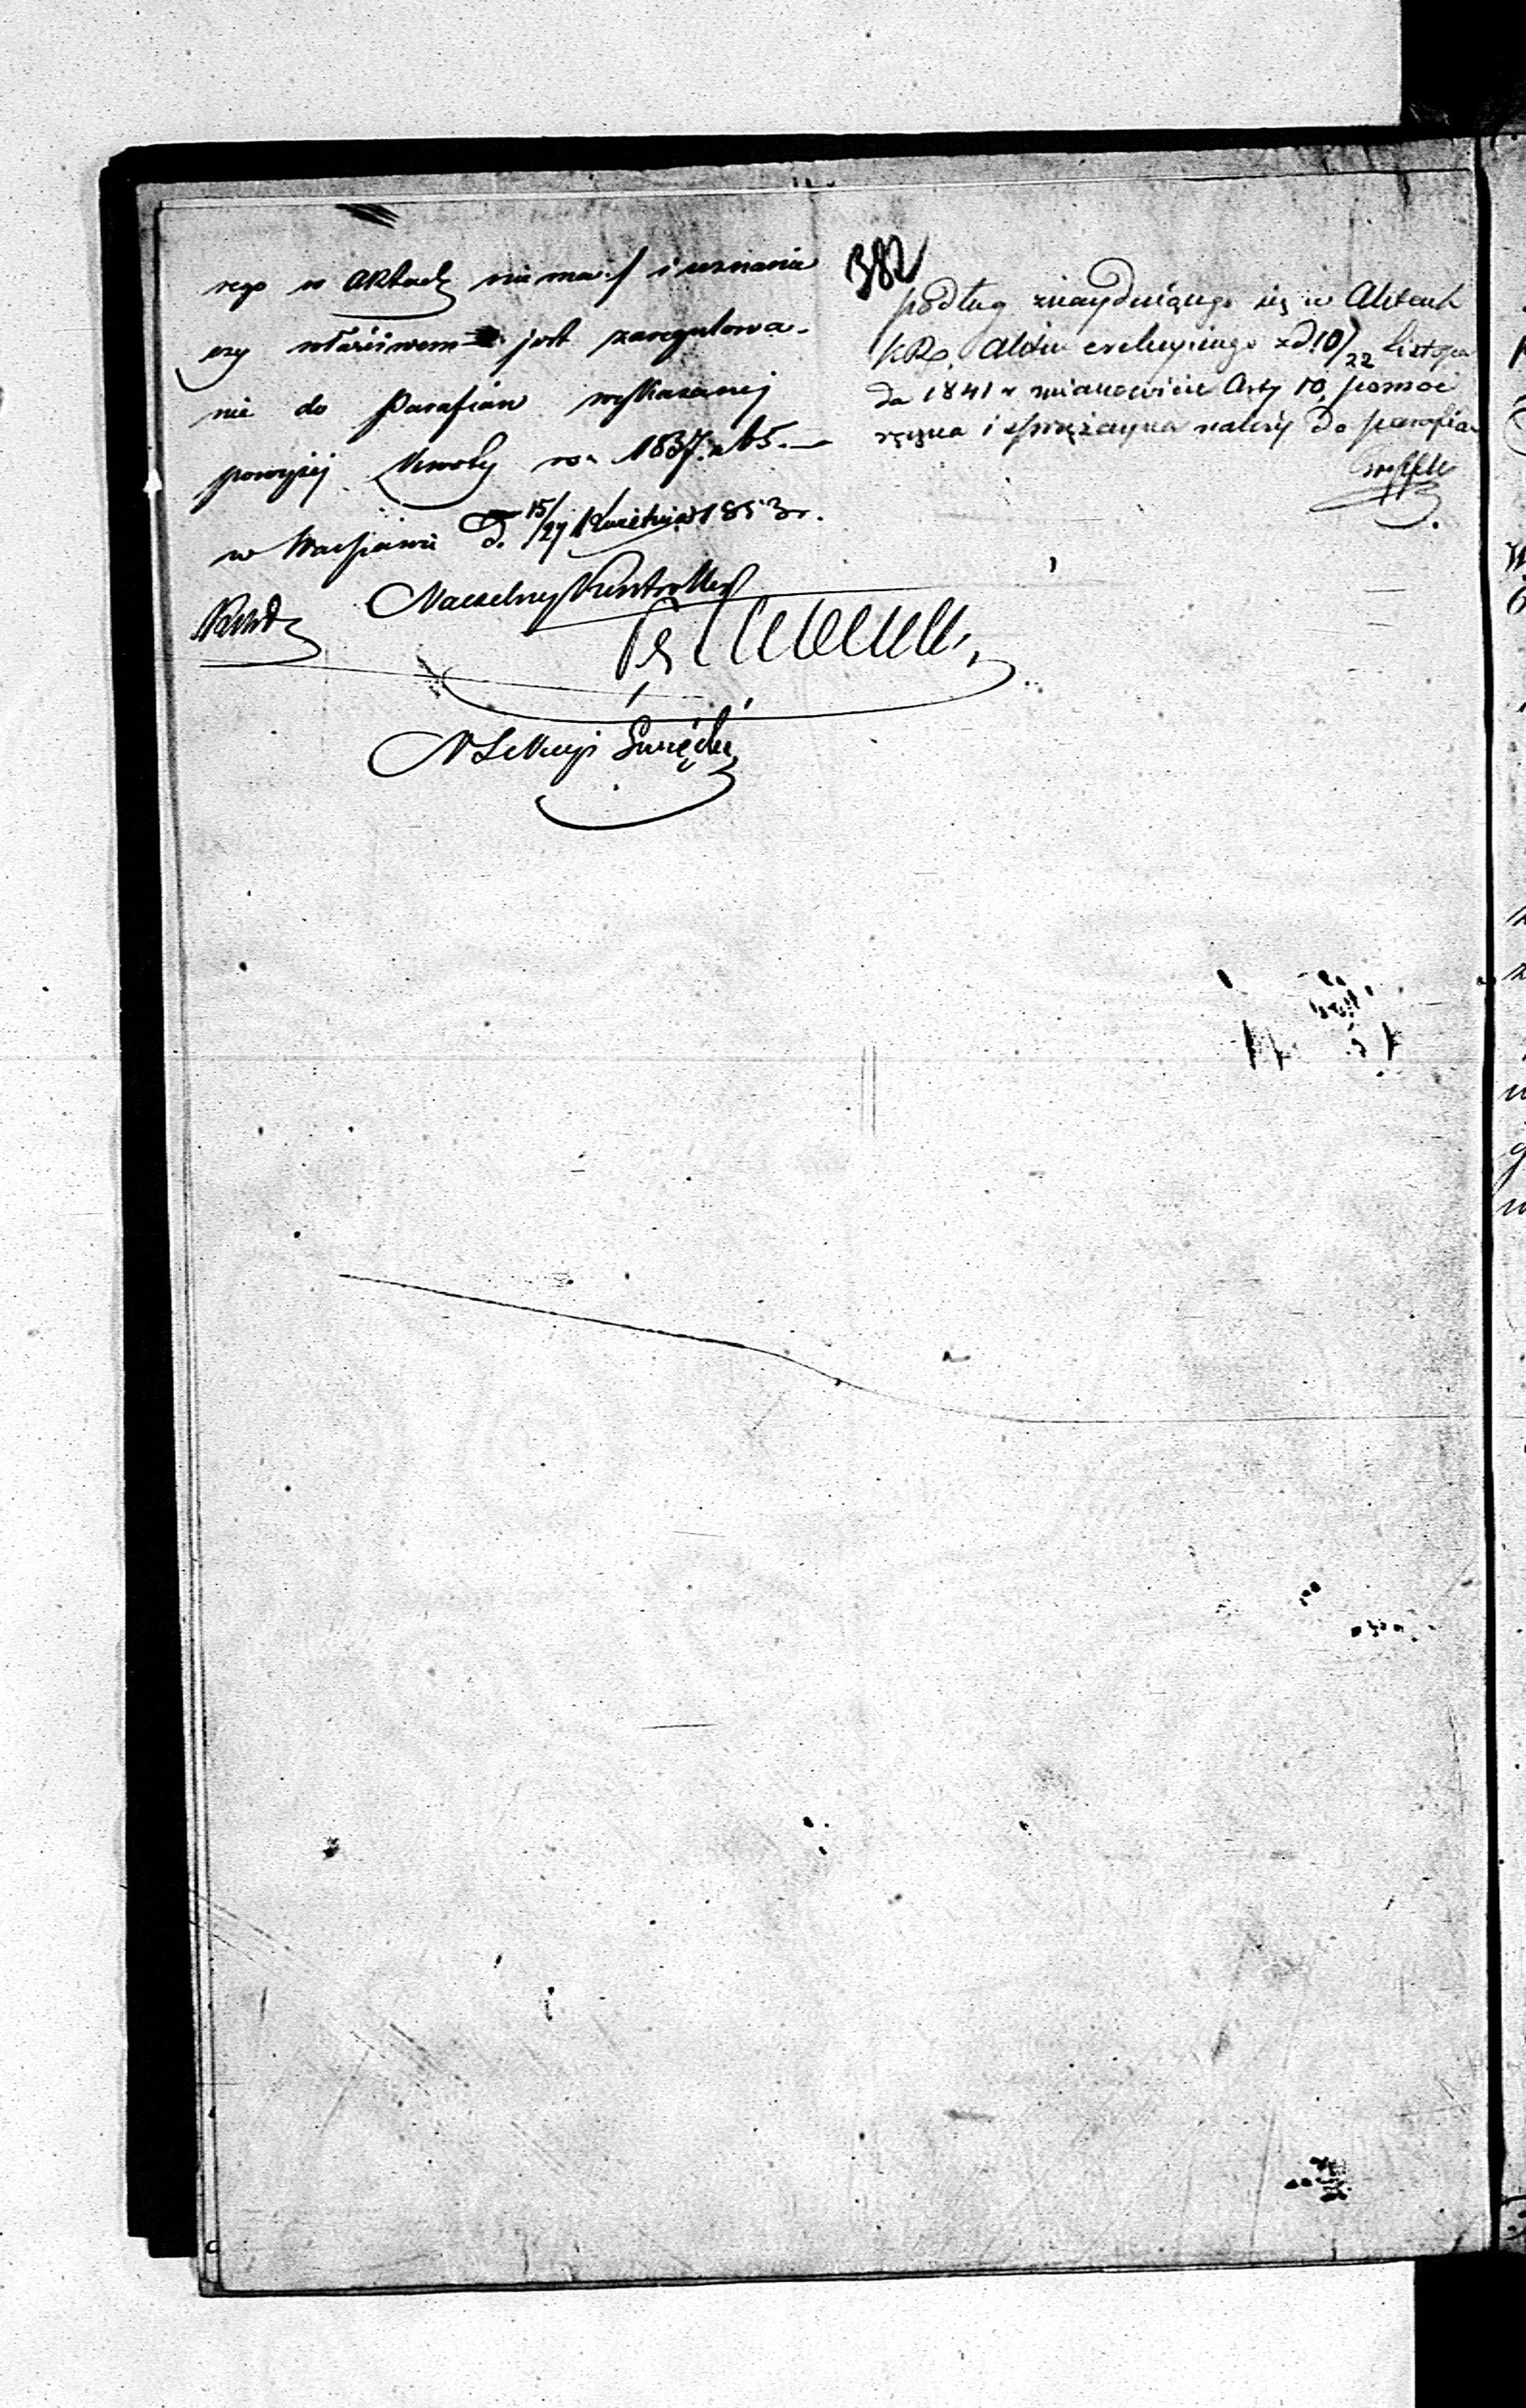 rego w aktach nie ma :/ i uznania
czy właściwem jest zaregulowa-
nie do Parafian wykazanej
powyżej kwoty rs. 1837. k 65.—
w Warszawie d. 15/27 Kwietnia 1853 r.
Naczelny Kontroller
N Sekcyi Święcki
382
podług znaydującego się w Aktach
KRz. Aktu erekcyinego z d 10/22 Listopa
da 1841 r mianowicie Arty 10, pomoc
ręczna i sprzężayna należy do parafian